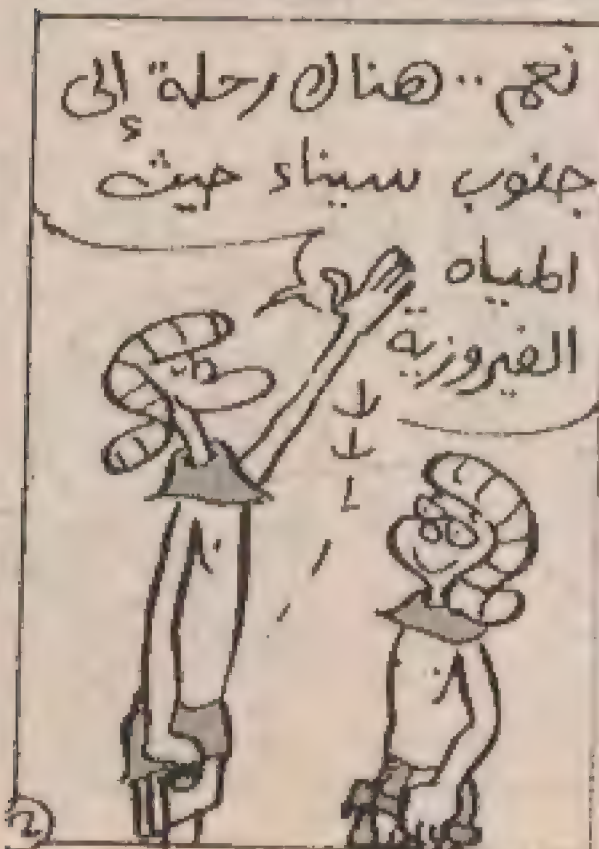 نعم.. هناك رحلة إلى
جنوب سيناء حيث
المياه
الفيروزية
2